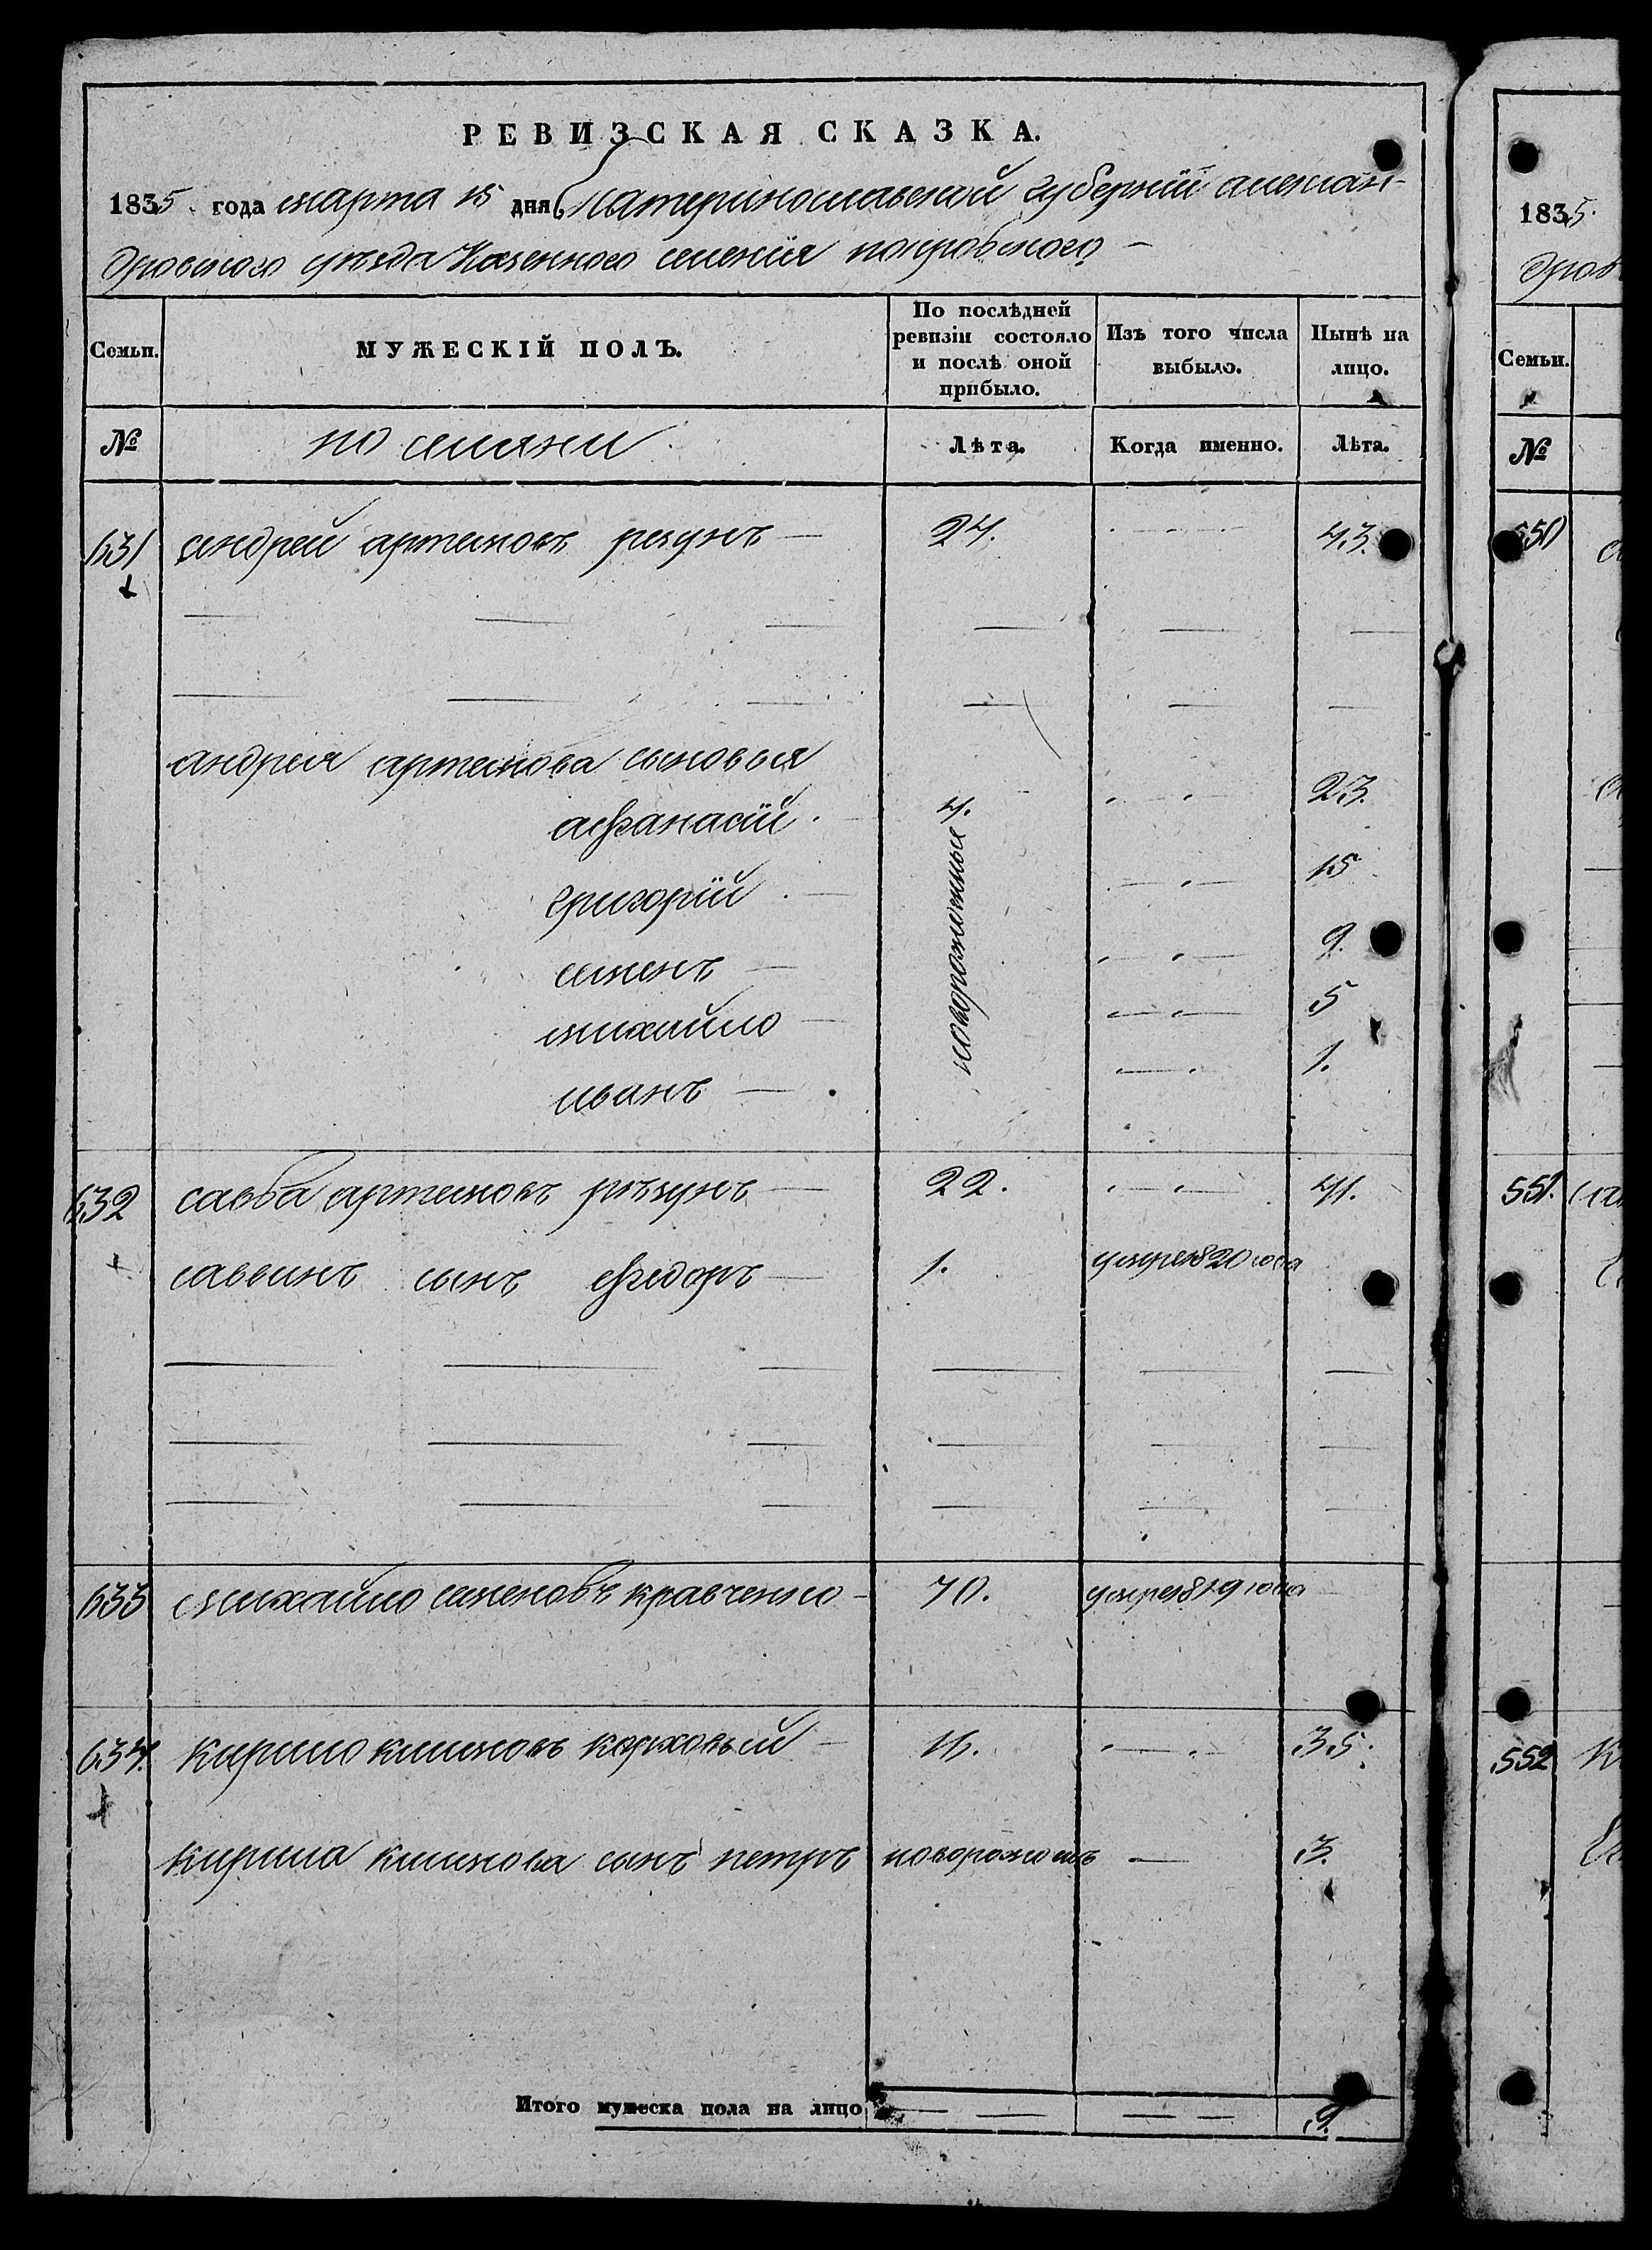 РЕВИЗСКАЯ СКАЗКА.
1835 года марта 15 дня Екатеринославской губернїи алексан-
дровского уѣзда Казенного селенїя покровского
Семьи. МУЖЕСКІЙ ПОЛЪ. По послѣдней ревизіи состояло и послѣ оной прибыло. Изъ того числа выбыло. Нынѣ на лицо.
№ Лѣта. Когда именно. Лѣта.
631 андрей артемовъ резунъ 24. 43.
андрея артемова сыновья
афанасїй 4. 23.
григорїй новорожденныя 15
семенъ 9.
михайло 5
иванъ 1.
632 савва артемовъ рѣзунъ 22. 41.
саввинъ сынъ федоръ 1. умре 820 года
633 михайло семеновъ кравченко 70. умре 819 года
634. кирило климовъ коржовый 16. 35.
кирила климова сынъ петръ новорожденъ 3.
Итого мужеска пола на лицо 9.
1835.
дров
Семьи.
№
550
551.
552